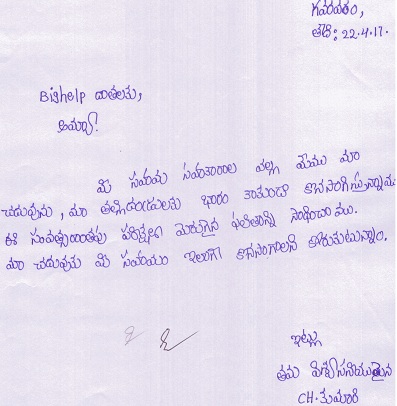 గవరవరం,
తేది: 22.4.17.
Bighelp దాతలకు,
అమ్మా!
మీ సహాయ సహకారాల వల్ల మేము మా
చదువును, మా తల్లిదండ్రులకు భారం కాకుండా కొనసాగిస్తున్నాము
ఈ సంవత్సరాంతపు పరీక్షల్లో మెరుగైన ఫలితాన్ని సాధించాము.
మా చదువుకు మీ సహాయం ఇలాగే కొనసాగాలని కోరుకుంటున్నాం.
ఇట్లు
తమ విశ్వసనీయులైన
CH.కుమారి